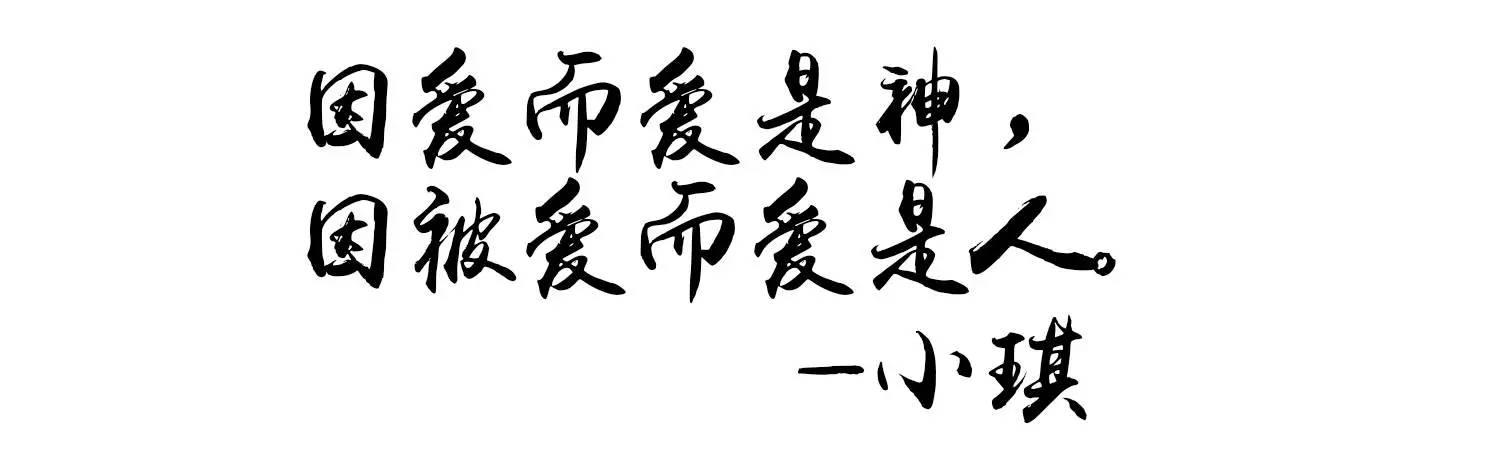 因爱而爱是神，
因被爱而爱是人。
—小琪